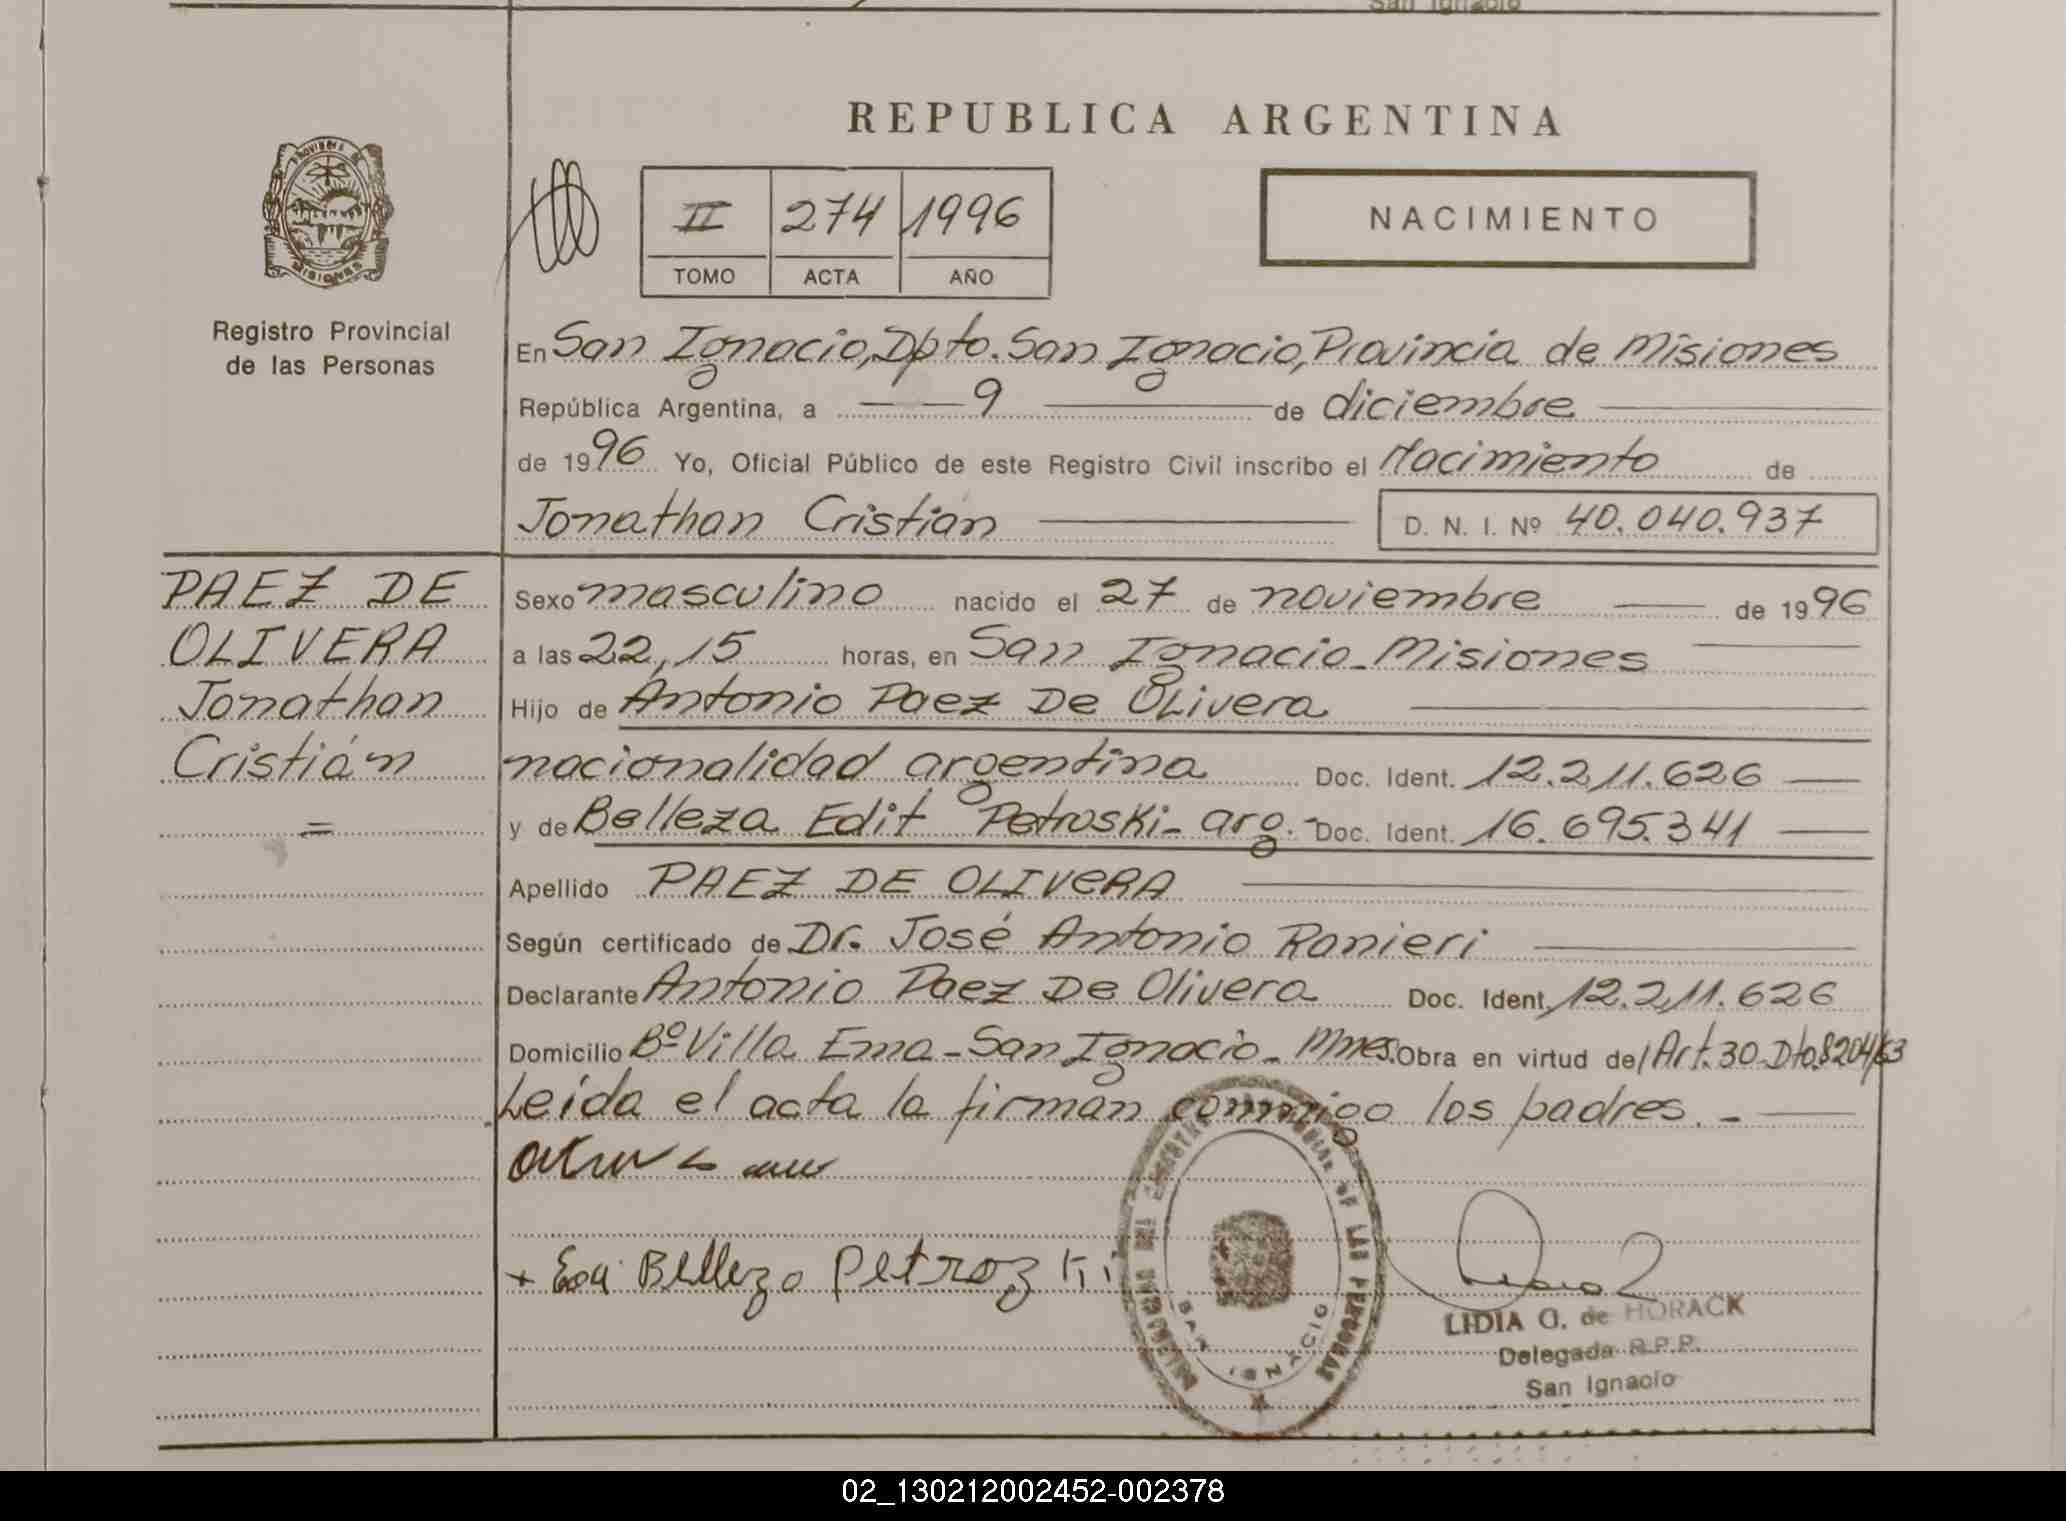 San Ignacio
REPUBLICA ARGENTINA
Provincia de
MISIONES
II 274 1996
TOMO ACTA AÑO
NACIMIENTO
Registro Provincial
de las Personas
En San Ignacio, Dpto. San Ignacio, Provincia de Misiones
República Argentina, a 9 de diciembre
de 1996 Yo, Oficial Público de este Registro Civil inscribo el Nacimiento de
Jonathan Cristian D. N. I. Nº 40.040.937
PAEZ DE
OLIVERA
Jonathan
Cristián
=
Sexo masculino nacido el 27 de noviembre de 1996
a las 22,15 horas, en San Ignacio - Misiones
Hijo de Antonio Paez De Olivera
nacionalidad argentina Doc. Ident. 12.211.626
y de Belleza Edit Petroski - arg. - Doc. Ident. 16.695.341
Apellido PAEZ DE OLIVERA
Según certificado de Dr. José Antonio Ranieri
Declarante Antonio Paez De Olivera Doc. Ident. 12.211.626
Domicilio Bº Villa Ema - San Ignacio - Mnes. Obra en virtud del Art. 30 Dto. 8204/63
Leída el acta la firman conmigo los padres. -
Belleza Petrozki
SAN IGNACIO
LIDIA G. de HORACK
Delegada R.P.P.
San Ignacio
02_130212002452-002378